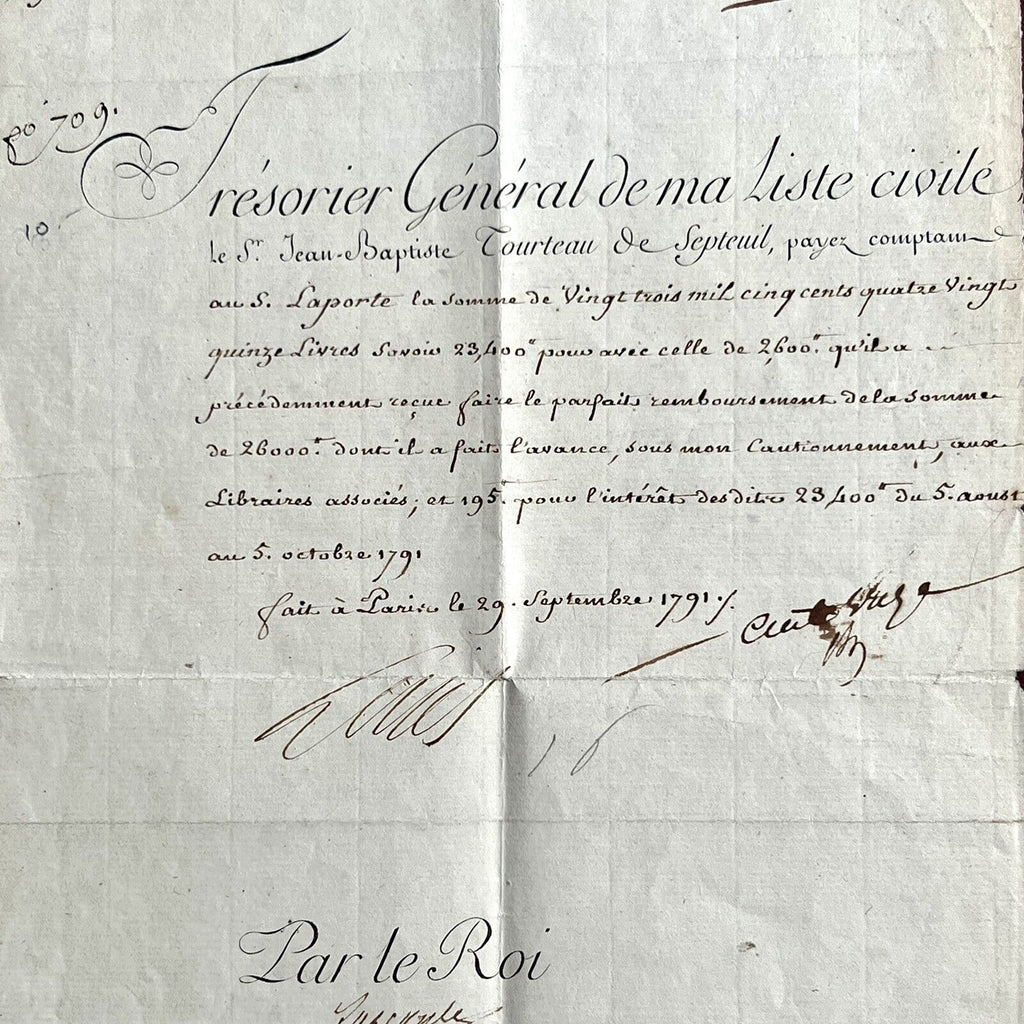 709.
10.
Trésorier Général de ma Liste civile
le Sr. Jean-Baptiste Tourteau De Septeuil, payez comptant
au S. Laporte la somme de Vingt trois mil cinq cents quatre Vingt
quinze Livres Savoir 23,400tt pour avec celle de 2,600tt. qu'il a
précédemment reçue faire le parfait remboursement de la Somme
de 26000tt. dont il a fait l'avance, sous mon Cautionnement, aux
Libraires associés; et 195tt. pour l'intérêt desdits 23,400tt du 5. aoust
au 5. octobre 1791
fait à Paris le 29. Septembre 1791./.
Louis
Par le Roi